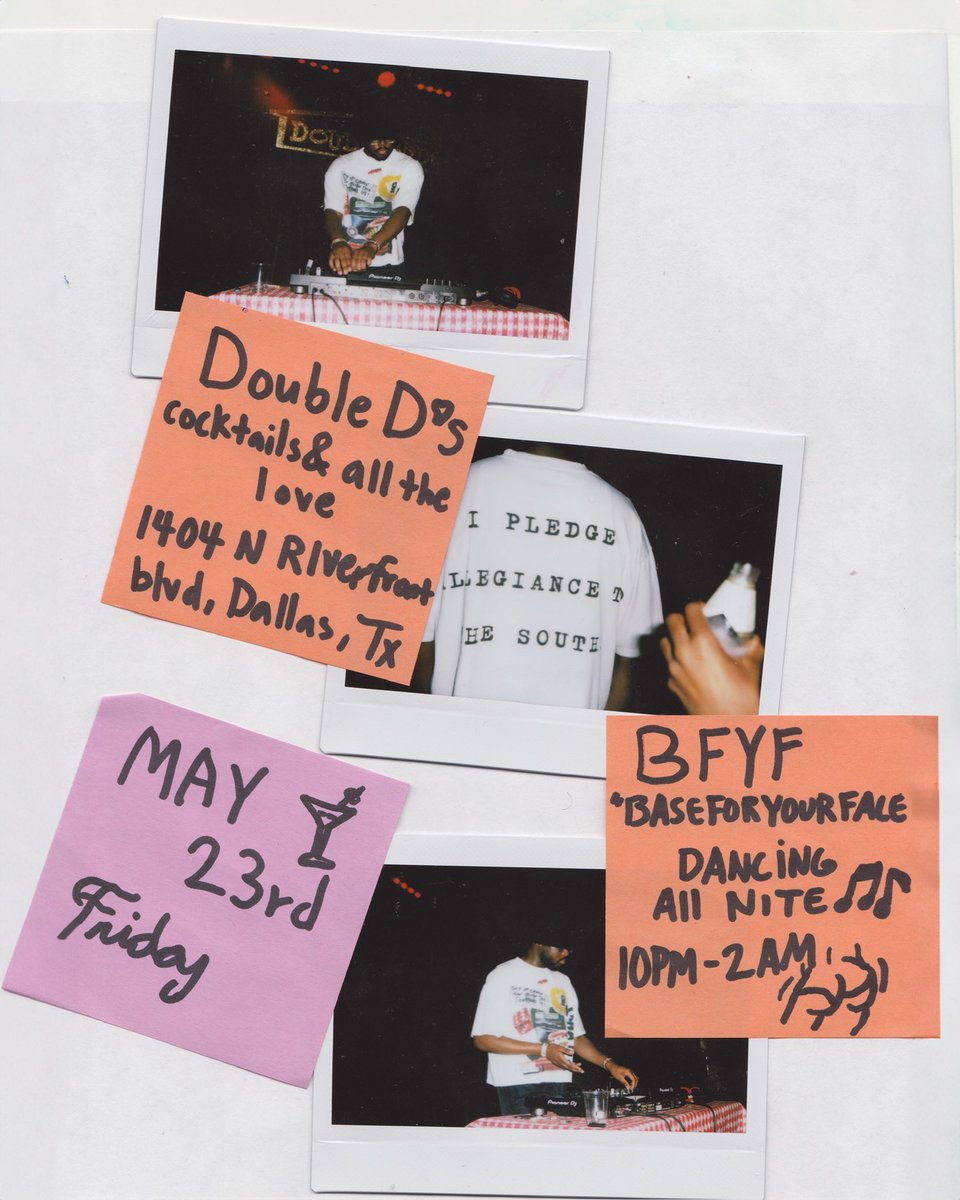 DOU
Pioneer Dj
Double D's
cocktails & all the
love
1404 N Riverfront
blvd, Dallas, Tx
I PLEDGE
LLEGIANCE T
HE SOUTH
MAY
23rd
Friday
BFYF
"BASEFORYOURFACE
DANCING
All NITE
10PM-2AM
Pioneer Dj
Pioneer Dj